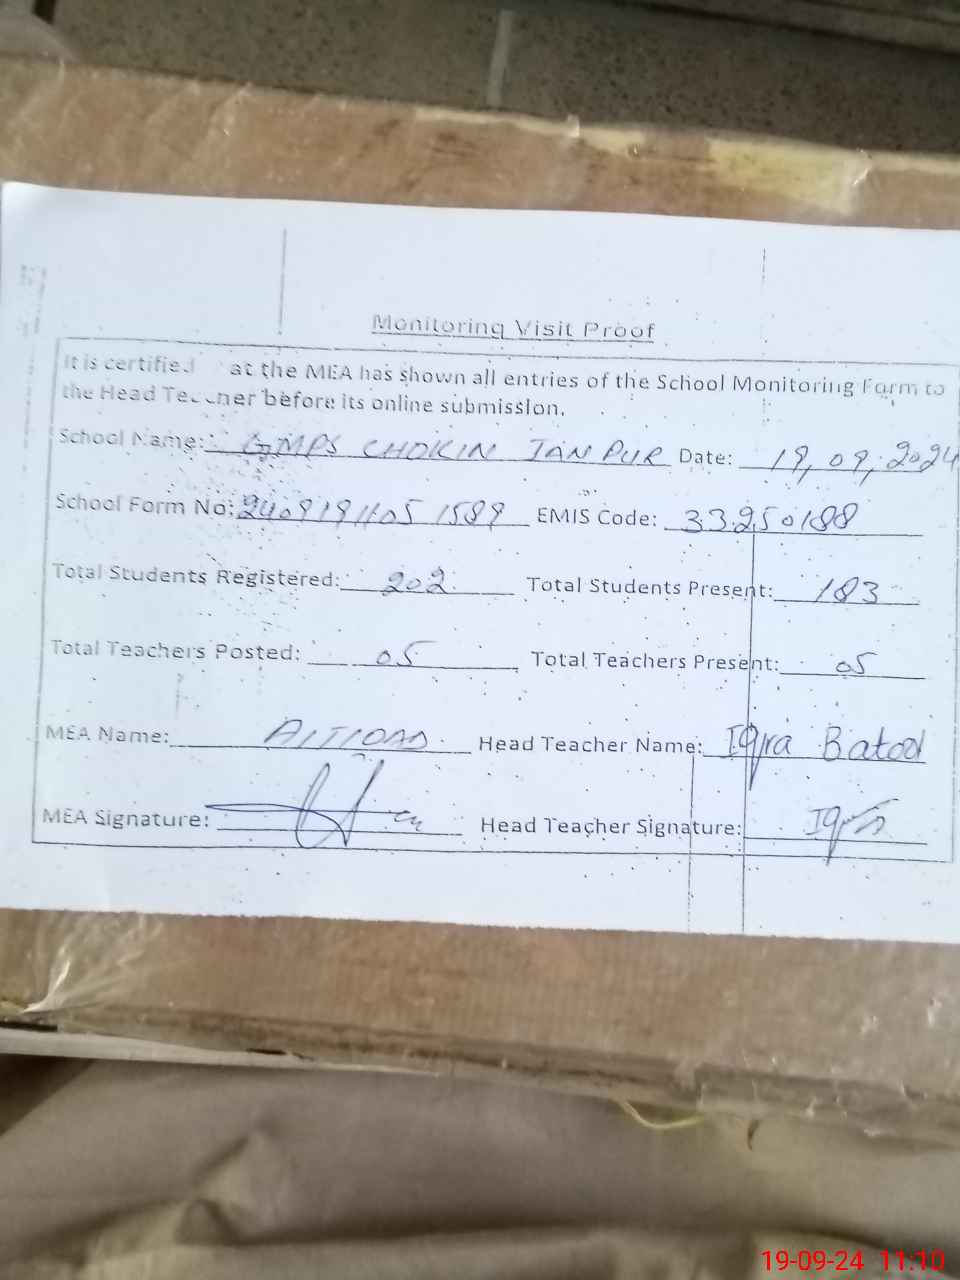 Monitoring Visit Proof
It is certified at the MEA has shown all entries of the School Monitoring Form to
the Head Teacher before its online submission.
School Name: GMPS CHOKIN JAN PUR Date: 19, 09, 2024
School Form No: EMIS Code: 33250188
Total Students Registered: 202 Total Students Present: 183
Total Teachers Posted: 05 Total Teachers Present: 05
MEA Name: Head Teacher Name: Iqra Batool
MEA Signature: Head Teacher Signature: Iqra
19-09-24 11:10